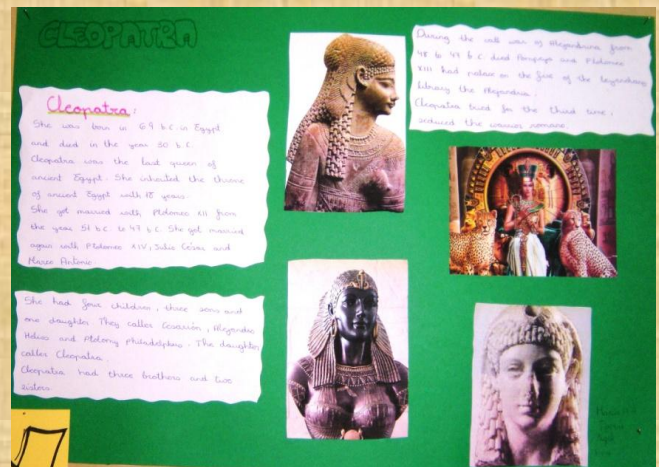 CLEOPATRA
Cleopatra:
She was born in 69 b.C. in Egypt
and died in the year 30 b.C.
Cleopatra was the last queen of
ancient Egypt. She inherited the throne
of ancient Egypt with 18 years.
She got married with Ptolomeo XII from
the year 51 b.C. to 47 b.C. She got married
again with Ptolomeo XIV, Julio César and
Marco Antonio
She had four children, three sons and
one daughter. They calles Cesarión, Alejandro
Helios and Ptolomy philadelphus. The daughter
calles Cleopatra.
Cleopatra had three brothers and two
sisters
During the war of Alejandria from
48 to 47 b.C. died and Ptolomeo
XIII had on the fire of the legendary
library the Alejandria.
Cleopatra tried for the third time,
seduced the romans